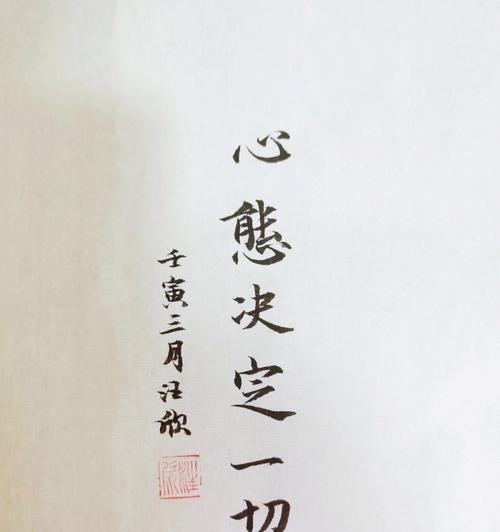 心態决定一切
壬寅三月汪欣